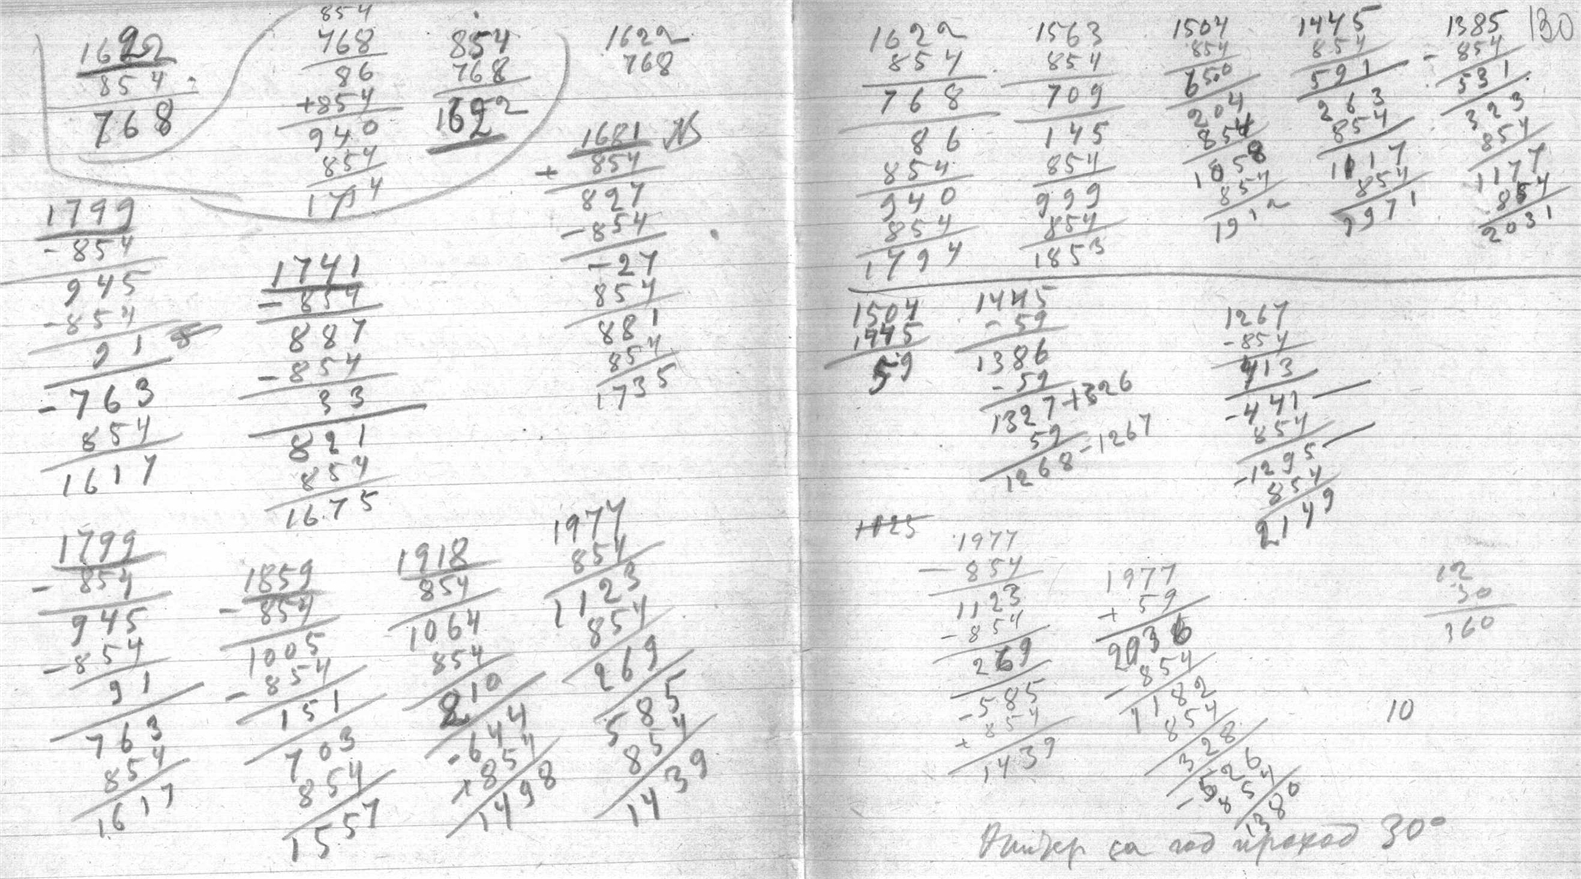 1622
854
768
854
768
86
+854
940
854
1794
854
768
1622
1622
768
1681
+ 854
827
-854
-27
854
881
854
1735
1799
-854
945
-854
91
-763
854
1617
1741
-854
887
-854
33
821
854
1675
1799
-854
945
-854
91
763
854
1617
1859
-854
1005
-854
151
703
854
1557
1918
854
1064
854
210
-644
+854
1498
1977
854
1123
854
269
585
854
1439
130
1622
854
768
86
854
940
854
1794
1563
854
709
145
854
999
854
1853
1504
854
650
204
854
1058
854
1912
1445
854
591
263
854
1117
854
1971
1385
- 854
531
323
854
1177
854
2031
1504
1445
59
1445
- 59
1386
- 59
1327+1326
59
1268-1267
1267
-854
413
-441
854
-1295
854
2149
1125
1977
-854
1123
-854
269
-585
+854
1439
1977
+ 59
2036
-854
1182
854
328
-526
854
1380
12
30
360
10
за год проход 30°